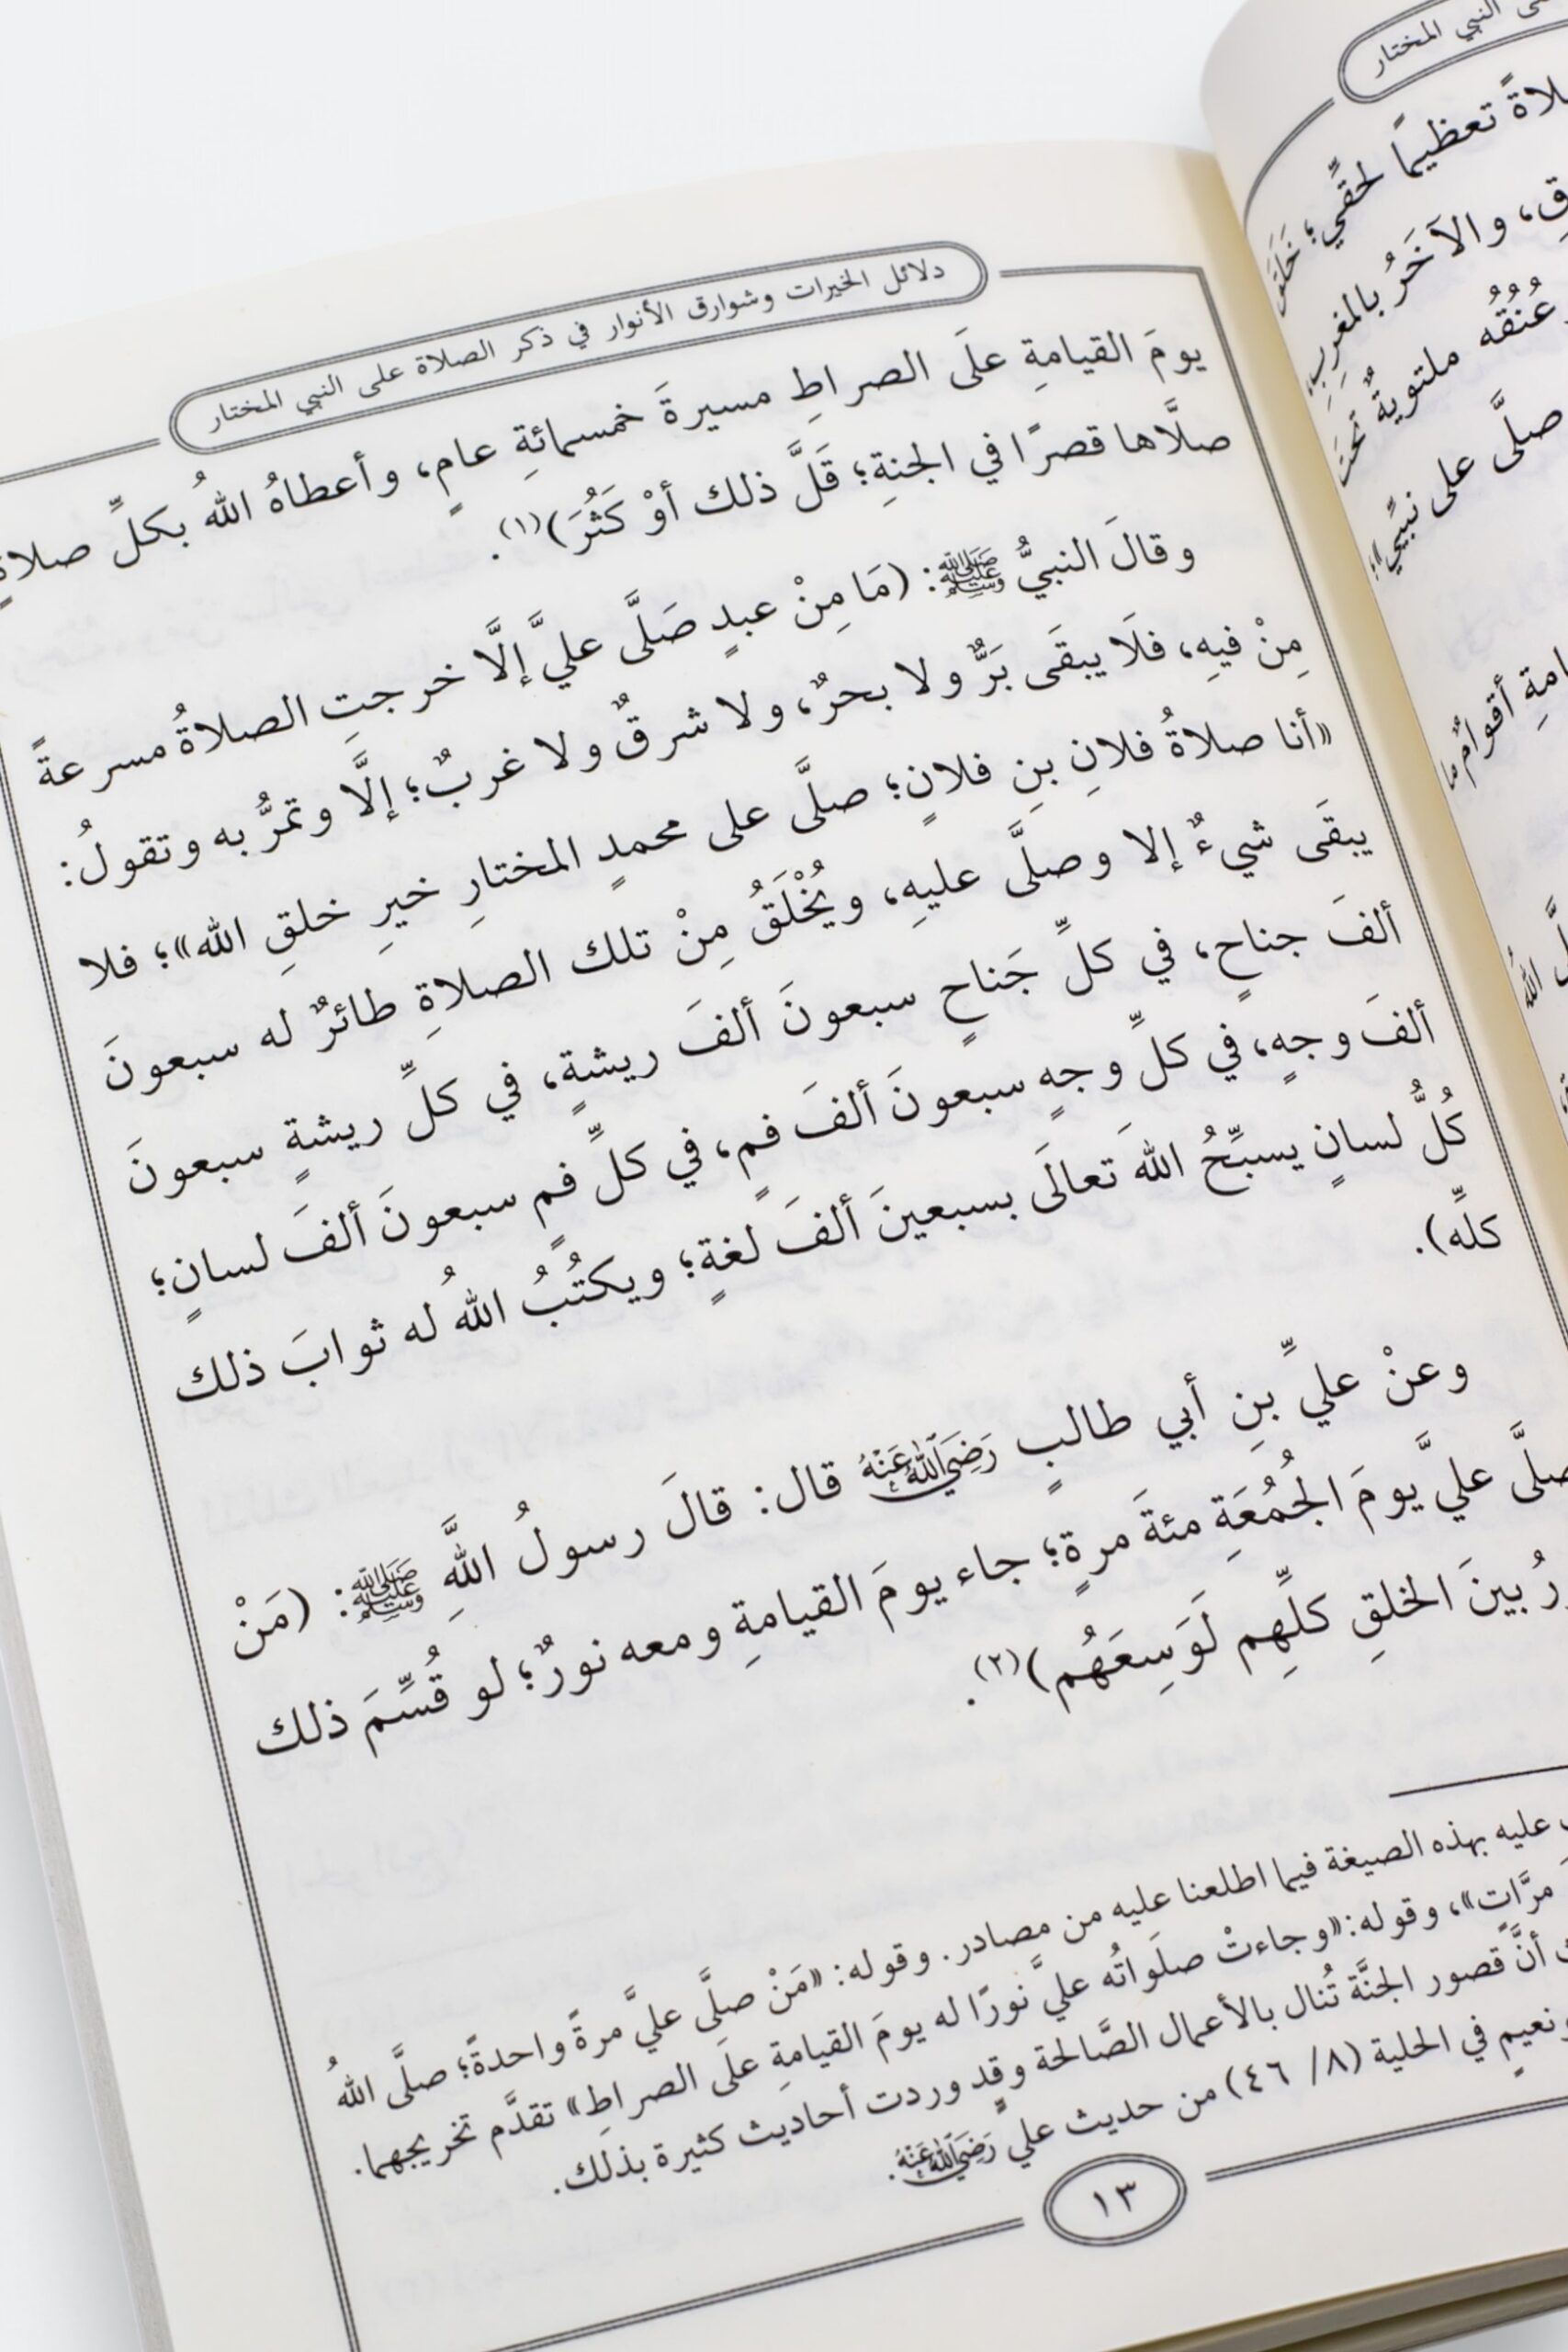 دلائل الخيرات وشوارق الأنوار في ذكر الصلاة على النبي المختار
يومَ القيامةِ علَى الصراطِ مسيرةَ خمسمائةِ عامٍ، وأعطاهُ اللهُ بكلِّ صلاةٍ
صلَّاها قصرًا في الجنةِ؛ قَلَّ ذلك أوْ كَثُرَ)(١).
وقالَ النبيُّ ﷺ: (مَا مِنْ عبدٍ صَلَّى عليَّ إلَّا خرجتِ الصلاةُ مسرعةً
مِنْ فيهِ، فلَا يبقَى بَرٌّ ولا بحرٌ، ولا شرقٌ ولا غربٌ؛ إلَّا وتمرُّ به وتقولُ:
«أنا صلاةُ فلانِ بنِ فلانٍ؛ صلَّى على محمدٍ المختارِ خيرِ خلقِ الله»؛ فلا
يبقَى شيءٌ إلا وصلَّى عليهِ، ويُخْلَقُ مِنْ تلك الصلاةِ طائرٌ له سبعونَ
ألفَ جناحٍ، في كلِّ جَناحٍ سبعونَ ألفَ ريشةٍ، في كلِّ ريشةٍ سبعونَ
ألفَ وجهٍ، في كلِّ وجهٍ سبعونَ ألفَ فمٍ، في كلِّ فمٍ سبعونَ ألفَ لسانٍ؛
كُلُّ لسانٍ يسبِّحُ اللهَ تعالَى بسبعينَ ألفَ لغةٍ؛ ويكتُبُ اللهُ له ثوابَ ذلك
كلِّه).
وعنْ عليِّ بنِ أبي طالبٍ رَضِيَ اللَّهُ عَنْهُ قال: قالَ رسولُ اللَّهِ ﷺ: (مَنْ
صلَّى عليَّ يومَ الجُمُعَةِ مئةَ مرةٍ؛ جاء يومَ القيامةِ ومعه نورٌ؛ لو قُسِّمَ ذلك
بينَ الخلقِ كلِّهِم لَوَسِعَهُم)(٢).
عليه بهذه الصيغة فيما اطلعنا عليه من مصادر. وقوله: «مَنْ صلَّى عليَّ مرةً واحدةً؛ صلَّى اللهُ
مرَّاتٍ»، وقوله: «وجاءتْ صلَواتُه عليَّ نورًا له يومَ القيامةِ علَى الصراطِ» تقدَّم تخريجهما.
أنَّ قصور الجنَّة تُنال بالأعمال الصَّالحة وقد وردت أحاديث كثيرة بذلك.
نعيمٍ في الحلية (٨/ ٤٦) من حديث علي رَضِيَ اللَّهُ عَنْهُ.
١٣
النبي المختار
تعظيمًا لحقِّي؛ خَلَقَ
والآخَرُ بالمغرِبِ،
عُنُقُه ملتويةٌ تحتَ
صلَّى على نبيِّي»؛
أقوامٌ ما